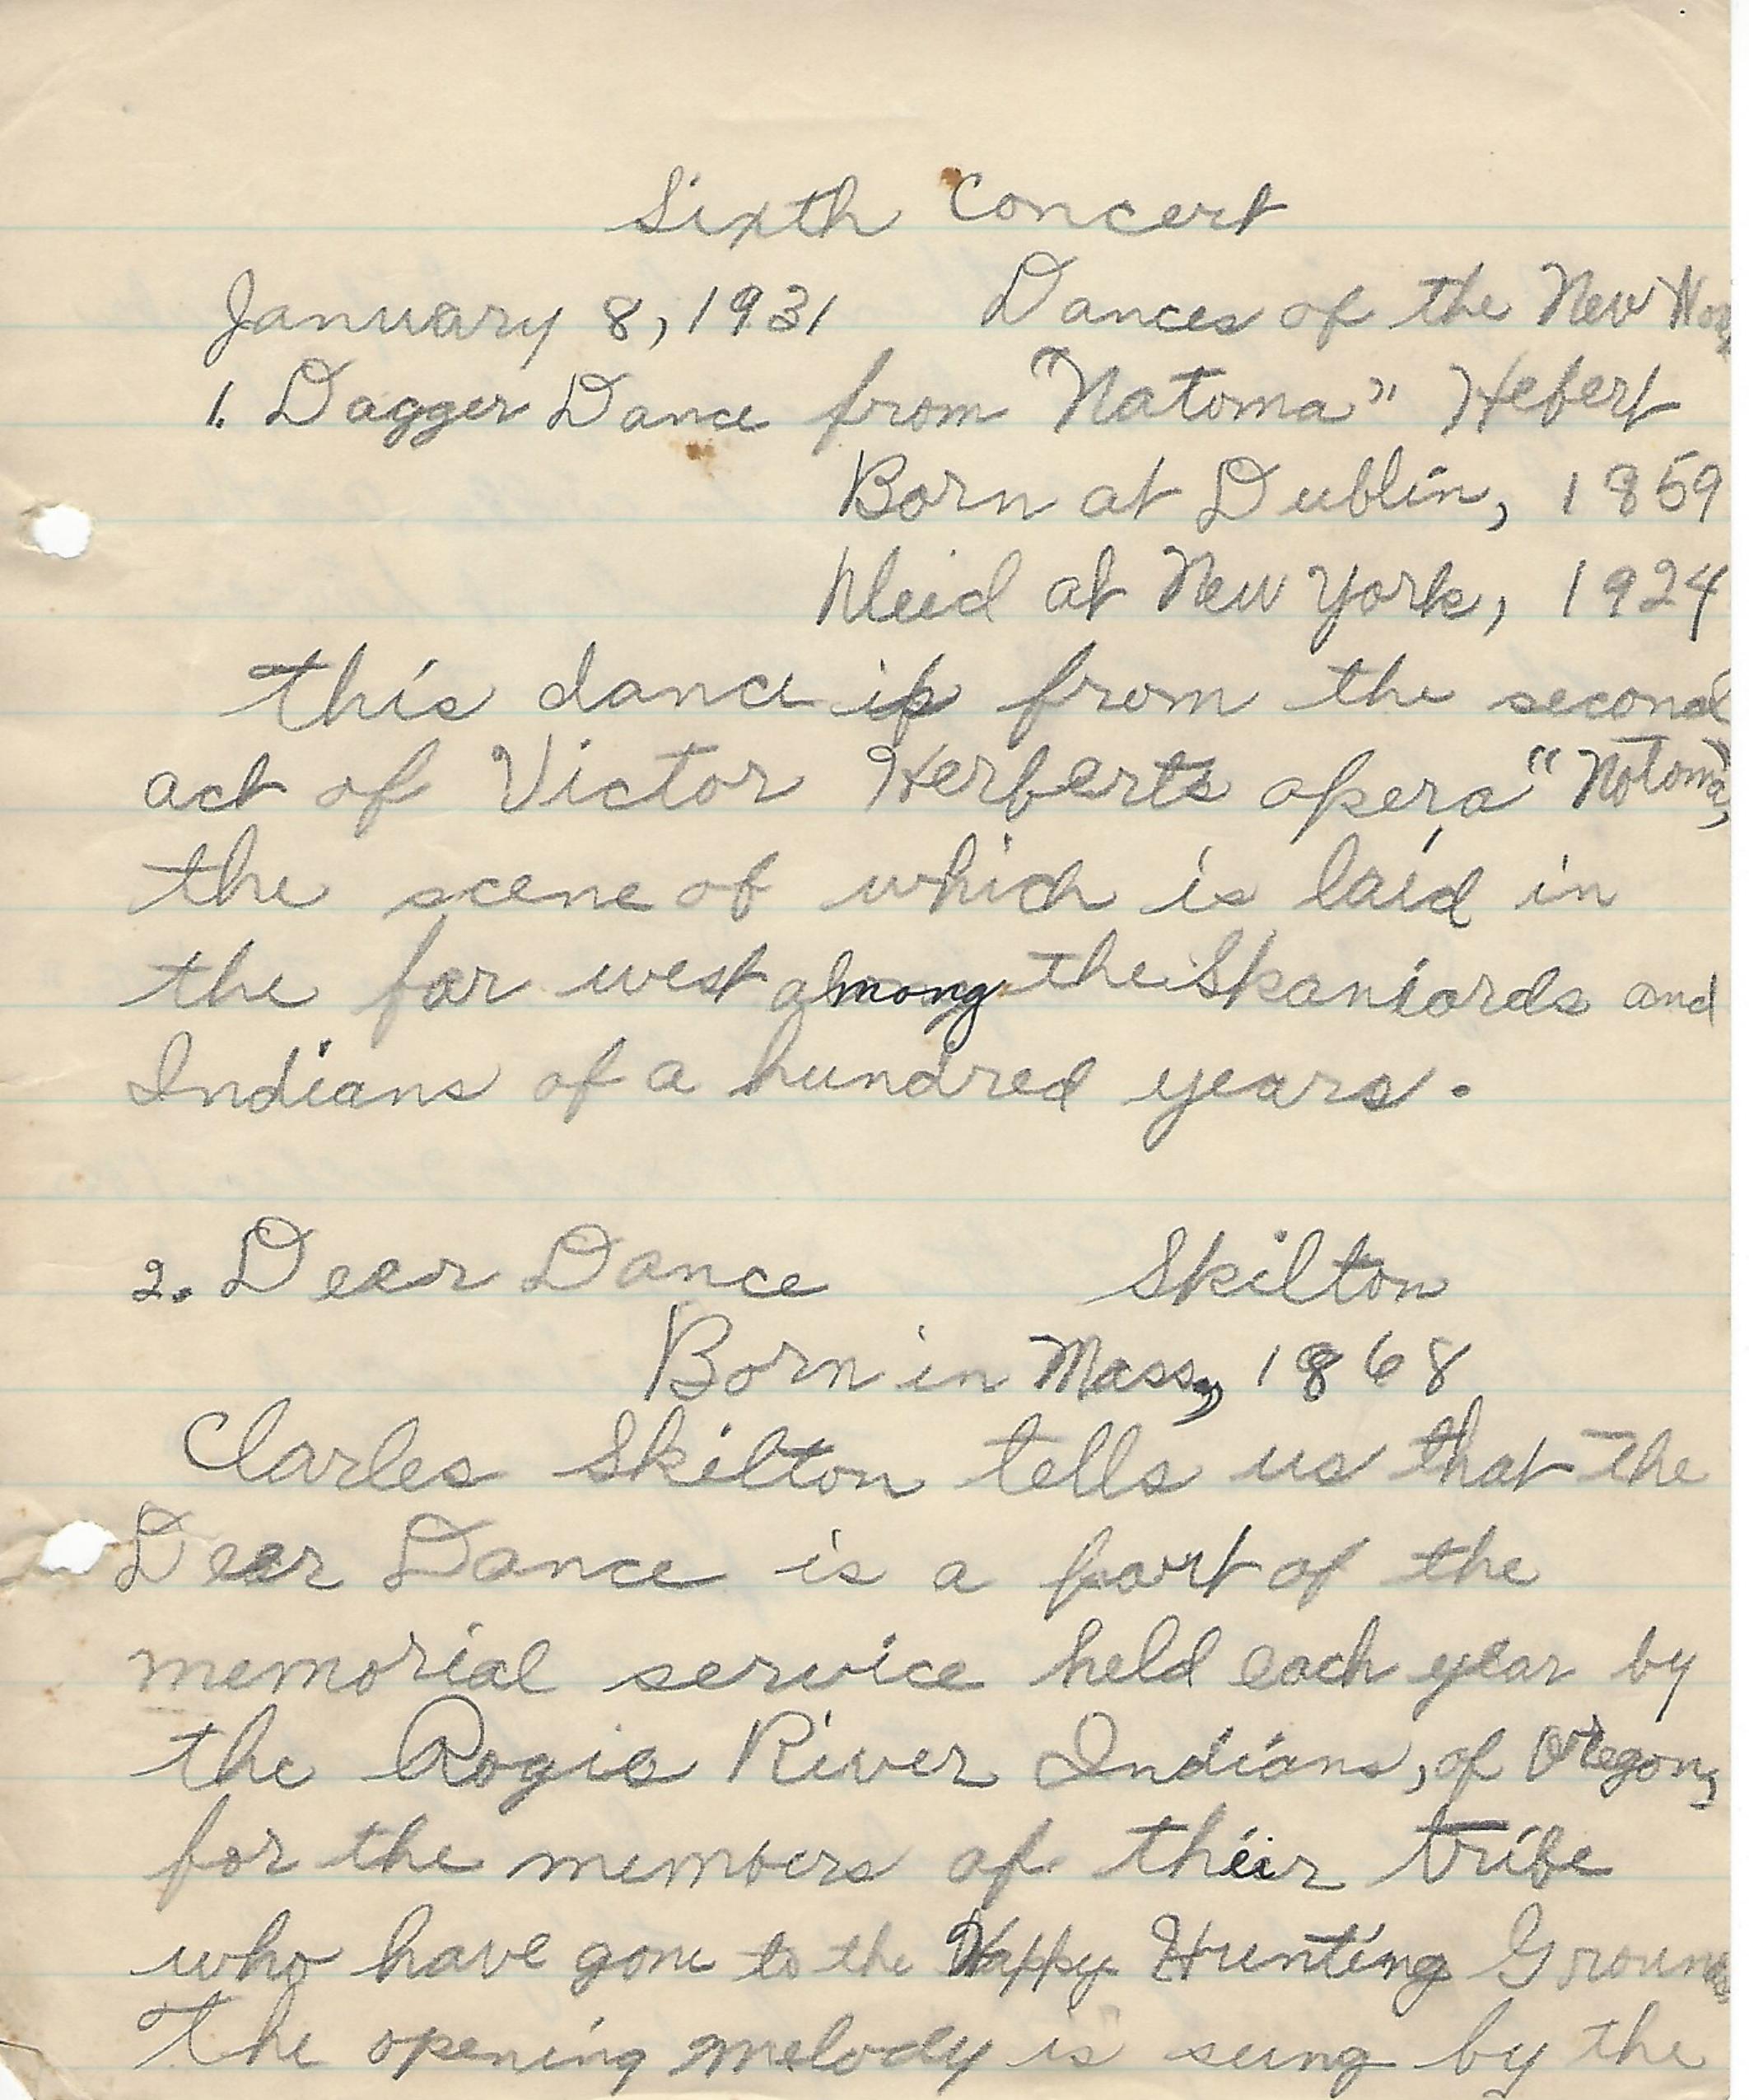 Sixth Concert
January 8, 1931 Dances of the New
1. Dagger Dance from "Natoma" Hebert
Born at Dublin, 1859
Dieid at New York, 1924
This dance is from the second
act of Victor Herberts opera "Notoma",
the scene of which is laid in
the far west among the Spaniards and
Indians of a hundred years.
2. Dear Dance Skilton
Born in Mass., 1868
Clarles Skilton tells us that the
Dear Dance is a part of the
memorial service held each year by
the Rogie River Indians, of Oregon,
for the members of their tribe
who have gone to the Happy Hunting Grounds
The opening melody is sung by the